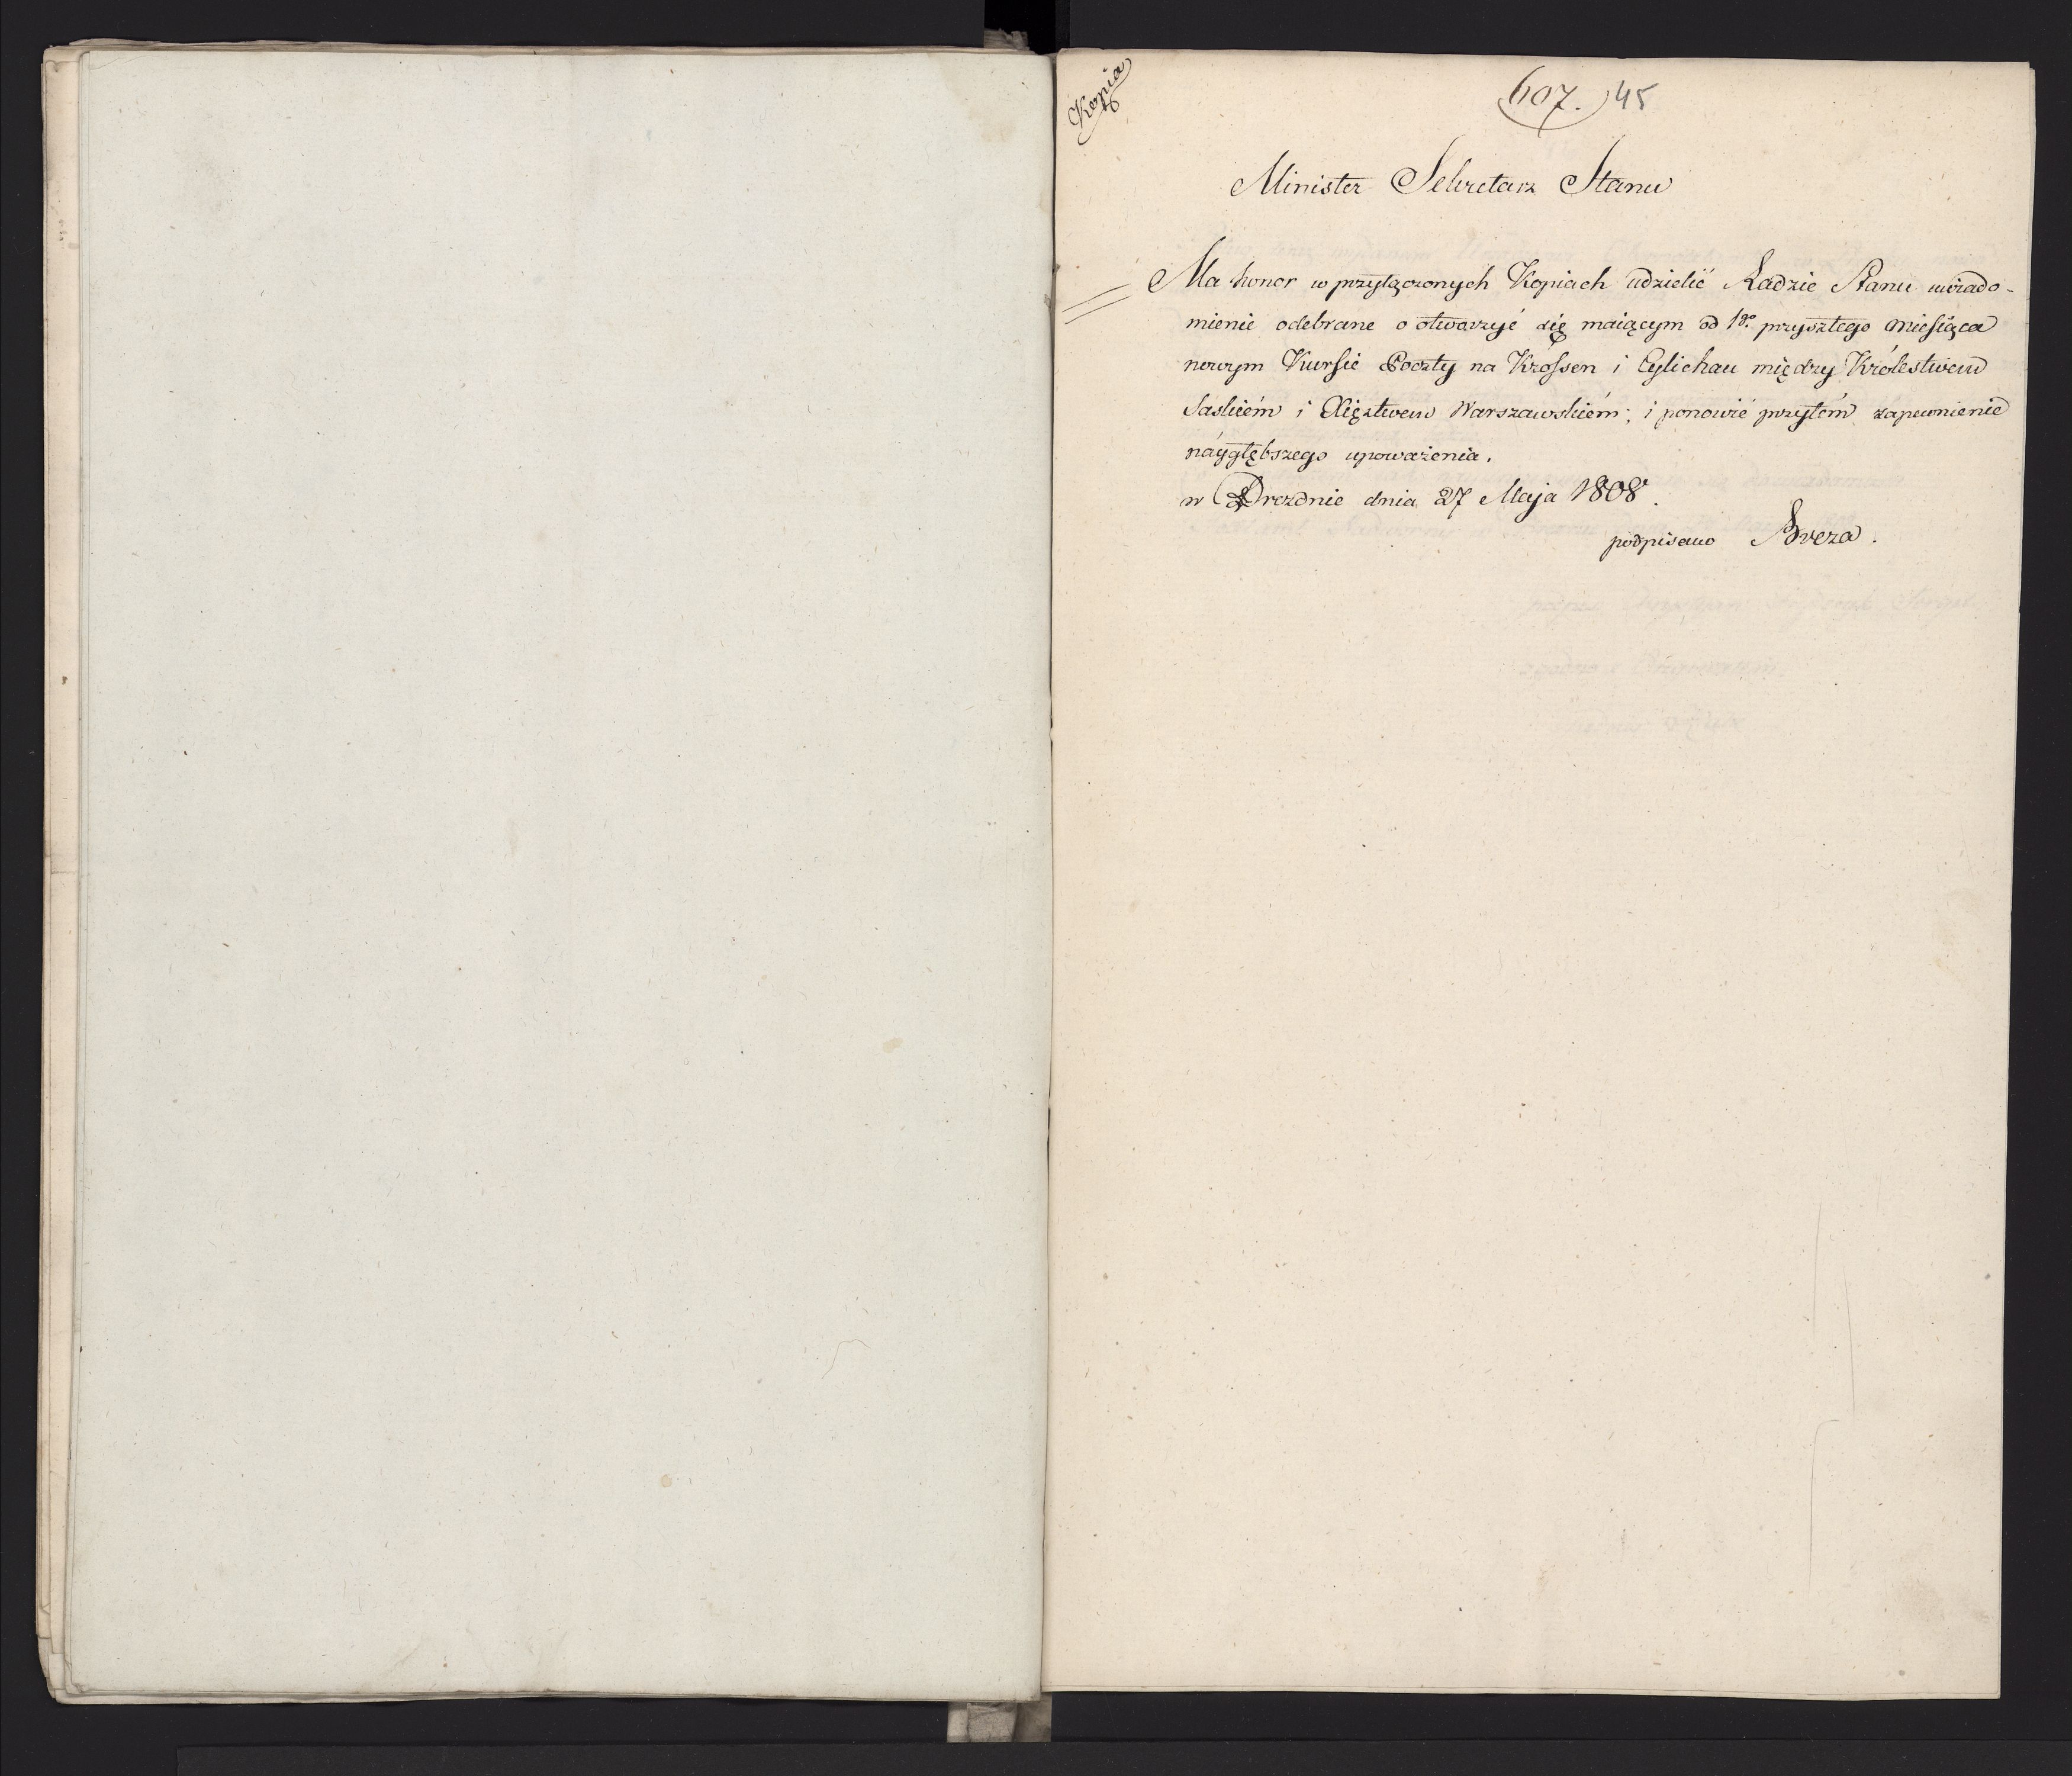 Kopia
607. 45
Minister Sekretarz Stanu
Ma honor w przyłączonych Kopiach udzielić Radzie Stanu uwiado-
mienie odebrane o otworzyć się maiącym od 1go. przyszłego Miesiąca
nowym Kursie Poczty na Krossen i Cylichau między Królestwem
Saskiém i Xięstwem Warszawskiém; i ponowić przytém zapewnienie
náygłębszego upoważenia.
w Dreznie dnia 27 Maja 1808.
podpisano Breza.